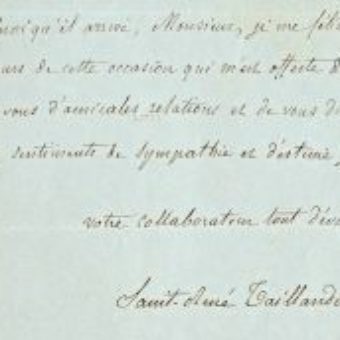 quoiqu'il arrive, Monsieur, je me féli
urs de cette occasion qui m'est offerte d
vous d'amicales relations et de vous d
sentiments de sympathie et d'estime
votre collaborateur tout dévo
Saint-René Taillandi